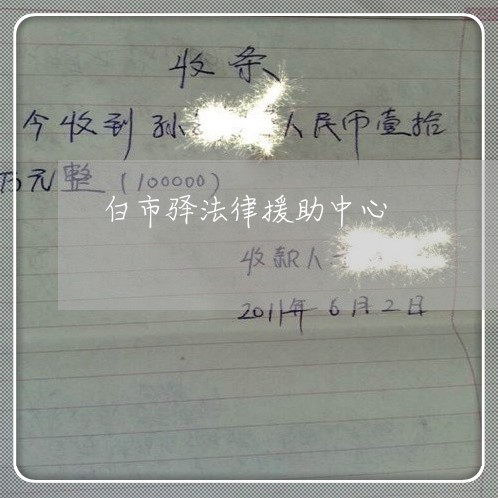 收条
今收到孙 人民币壹拾
万元整（100000）
白市驿法律援助中心
收款人
2011年6月2日